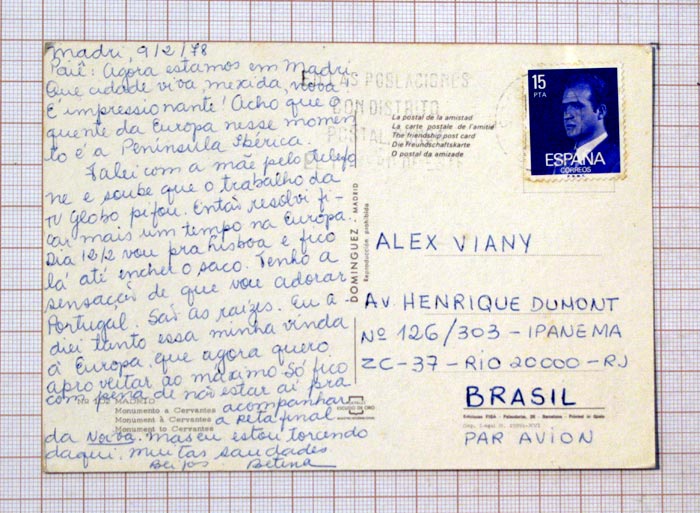 Madri, 9/2/78
Paiê: Agora estamos em Madri
Que cidade viva, mexida, nova
É impressionante! Acho que o
quente da Europa nesse momen
to é a Península Ibérica.
Falei com a mãe pelo telefo
ne e soube que o trabalho da
TV Globo pifou. Então resolvi fi-
car mais um tempo na Europa.
Dia 12/2 vou pra Lisboa e fico
lá até encher o saco. Tenho a
sensação de que vou adorar
Portugal. São as raízes. Eu a-
diei tanto essa minha vinda
à Europa, que agora quero
aproveitar ao máximo. Só fico
com pena de não estar aí pra
acompanhar
a reta final
da Noiva. mas eu estou torcendo
daqui. Muitas saudades
Beijos Betina
Nº 102 MADRID
Monumento a Cervantes
Monument à Cervantes
Monument to Cervantes
ESCUDO DE ORO
DOMINGUEZ - MADRID
Reproducción prohibida
EN LAS POBLACIONES
CON DISTRITO
POSTAL
La postal de la amistad
La carte postale de l'amitié
The friendship post card
Die Freundschaftskarte
O postal da amizade
15
PTA
ESPAÑA
CORREOS
ALEX VIANY
AV. HENRIQUE DUMONT
Nº 126/303 - IPANEMA
ZC-37 - RIO 20000 - RJ
BRASIL
Printed in Spain
PAR AVION